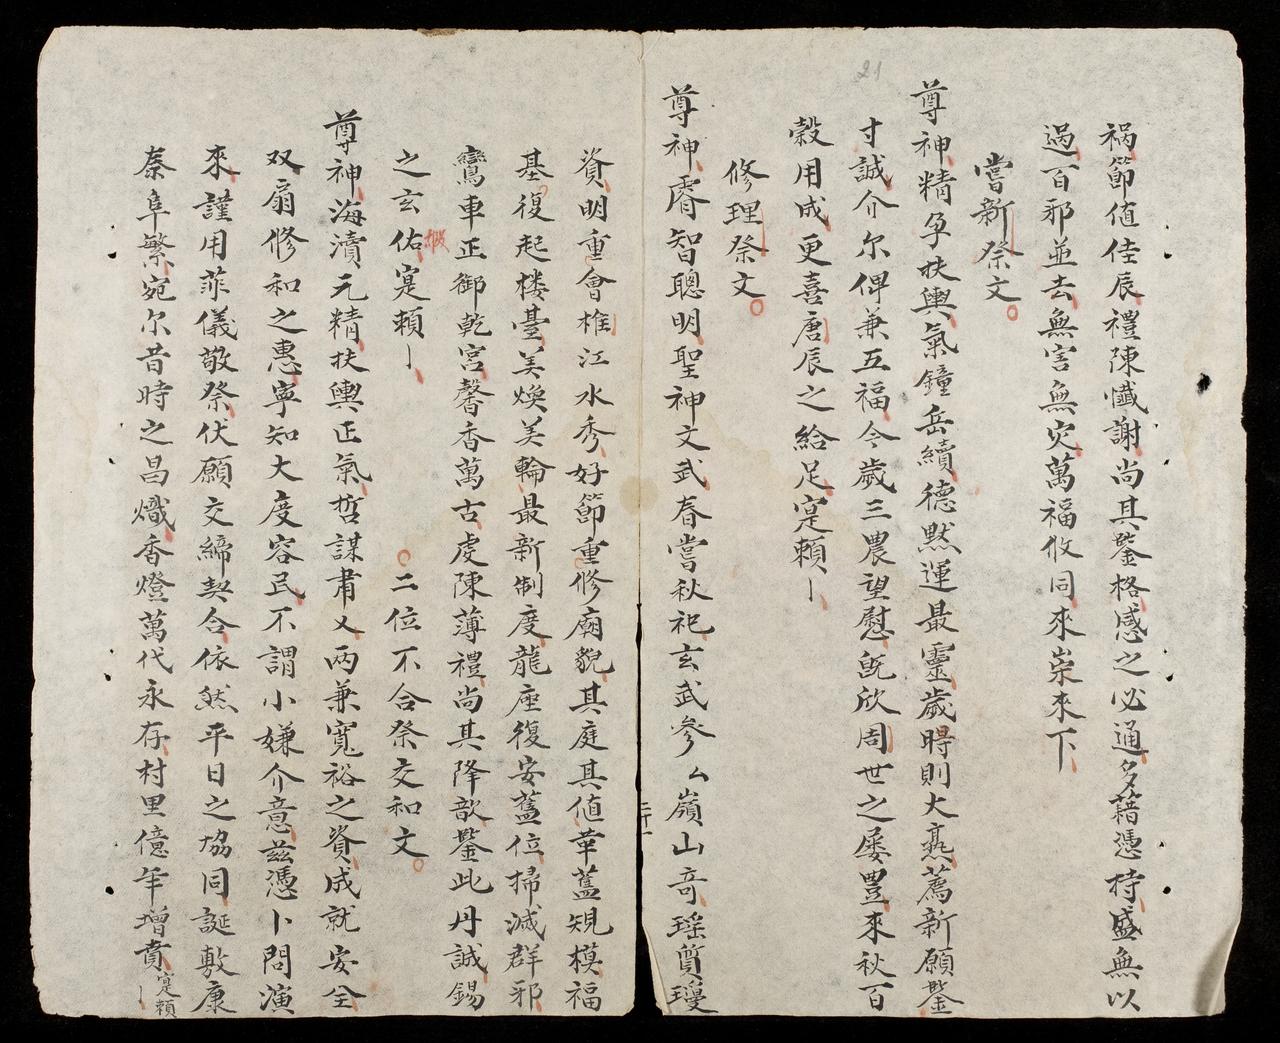 禍節值佳辰禮陳懺謝尚其鑒格感之必通多藉憑持盛無以
過百邪並去無害無灾萬福攸同來崇來下
嘗新祭文
尊神精孕扶輿氣鐘岳續德黙運最靈歲時則大烝薦新願鑒
寸誠介尔俾兼五福今歲三農望慰既欣周世之屡豊來秋百
榖用成更喜唐辰之給足寔賴
修理祭文
尊神睿智聰明聖神文武春嘗秋祀玄武參厶嶺山竒瑶質瓊
資明重會椎江水秀好節重修廟貌其庭其值革蓋䂓模福
基復起楼臺美煥美輪最新制度龍座復安蓋位掃滅群邪
鸞車正御乾宫馨香萬古虔陳薄禮尚其降歆鑒此丹誠錫
之玄佑寔賴
嘏
二位不合祭交和文
尊神海瀆元精扶輿正氣哲謀肅乂两兼寬裕之資成就安全
双扇修和之惠寧知大度容民不謂小嫌介意兹憑卜問演
來謹用菲儀敬祭伏願交締契合依然平日之協同誕敷康
秦阜繁宛尔昔時之昌熾香燈萬代永存村里億年增賁寔賴
二十一
21